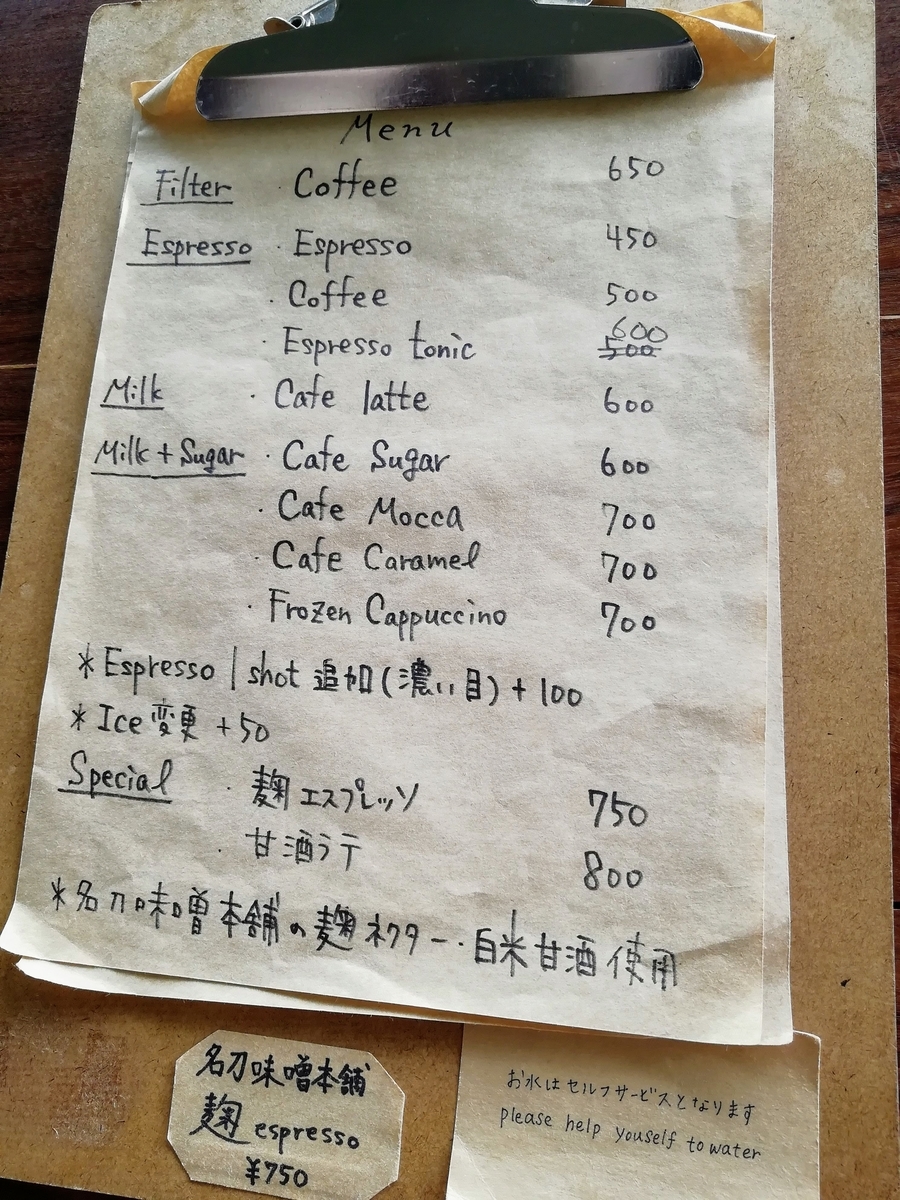 Menu
Filter · Coffee 650
Espresso · Espresso 450
· Coffee 500
· Espresso tonic 600 500
Milk · Cafe latte 600
Milk + Sugar · Cafe Sugar 600
· Cafe Mocca 700
· Cafe Caramel 700
· Frozen Cappuccino 700
*Espresso 1 shot 追加(濃い目)+100
*Ice変更 +50
Special · 麹エスプレッソ 750
· 甘酒ラテ 800
*名刀味噌本舗の麹ネクター・白米甘酒使用
名刀味噌本舗
麹 espresso
¥750
お水はセルフサービスとなります
please help youself to water